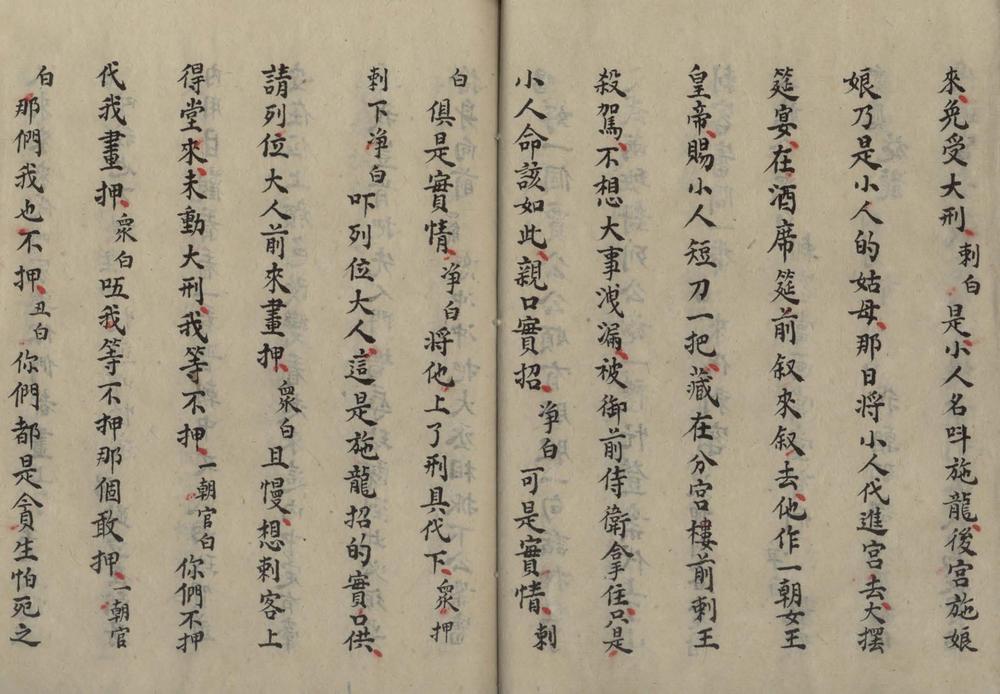 來、免受大刑、刺白是、小人名呌施龍、後宮施娘
娘乃是小人的姑母、那日將小人代進宮去、大摆
筵宴、在酒席筵前叙來叙去、他作一朝女王
皇帝、賜小人短刀一把、藏在分宮樓前刺王
殺駕、不想大事洩漏、被御前侍衛拿住、只是
小人命該如此、親口實招、净白可是實情、刺
白俱是實情、净白將他上了刑具代下、衆押
刺下净白吓列位大人、這是施龍招的實口供、
請列位大人前來畫押、衆白且慢、想刺客上
得堂來、未動大刑、我等不押、一朝官白你們不押
代我畫押、衆白咓我等不押那個敢押、一朝官
白那們我也不押、丑白你們都是貪生怕死之